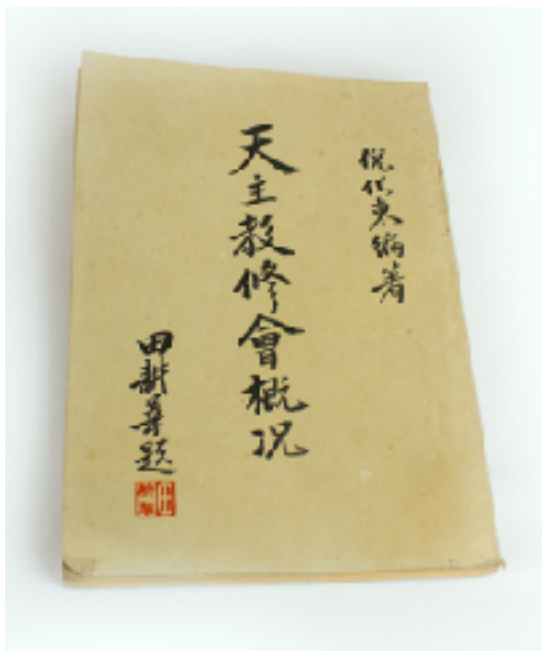 倪化東編著
天主教修會概況
田耕莘題